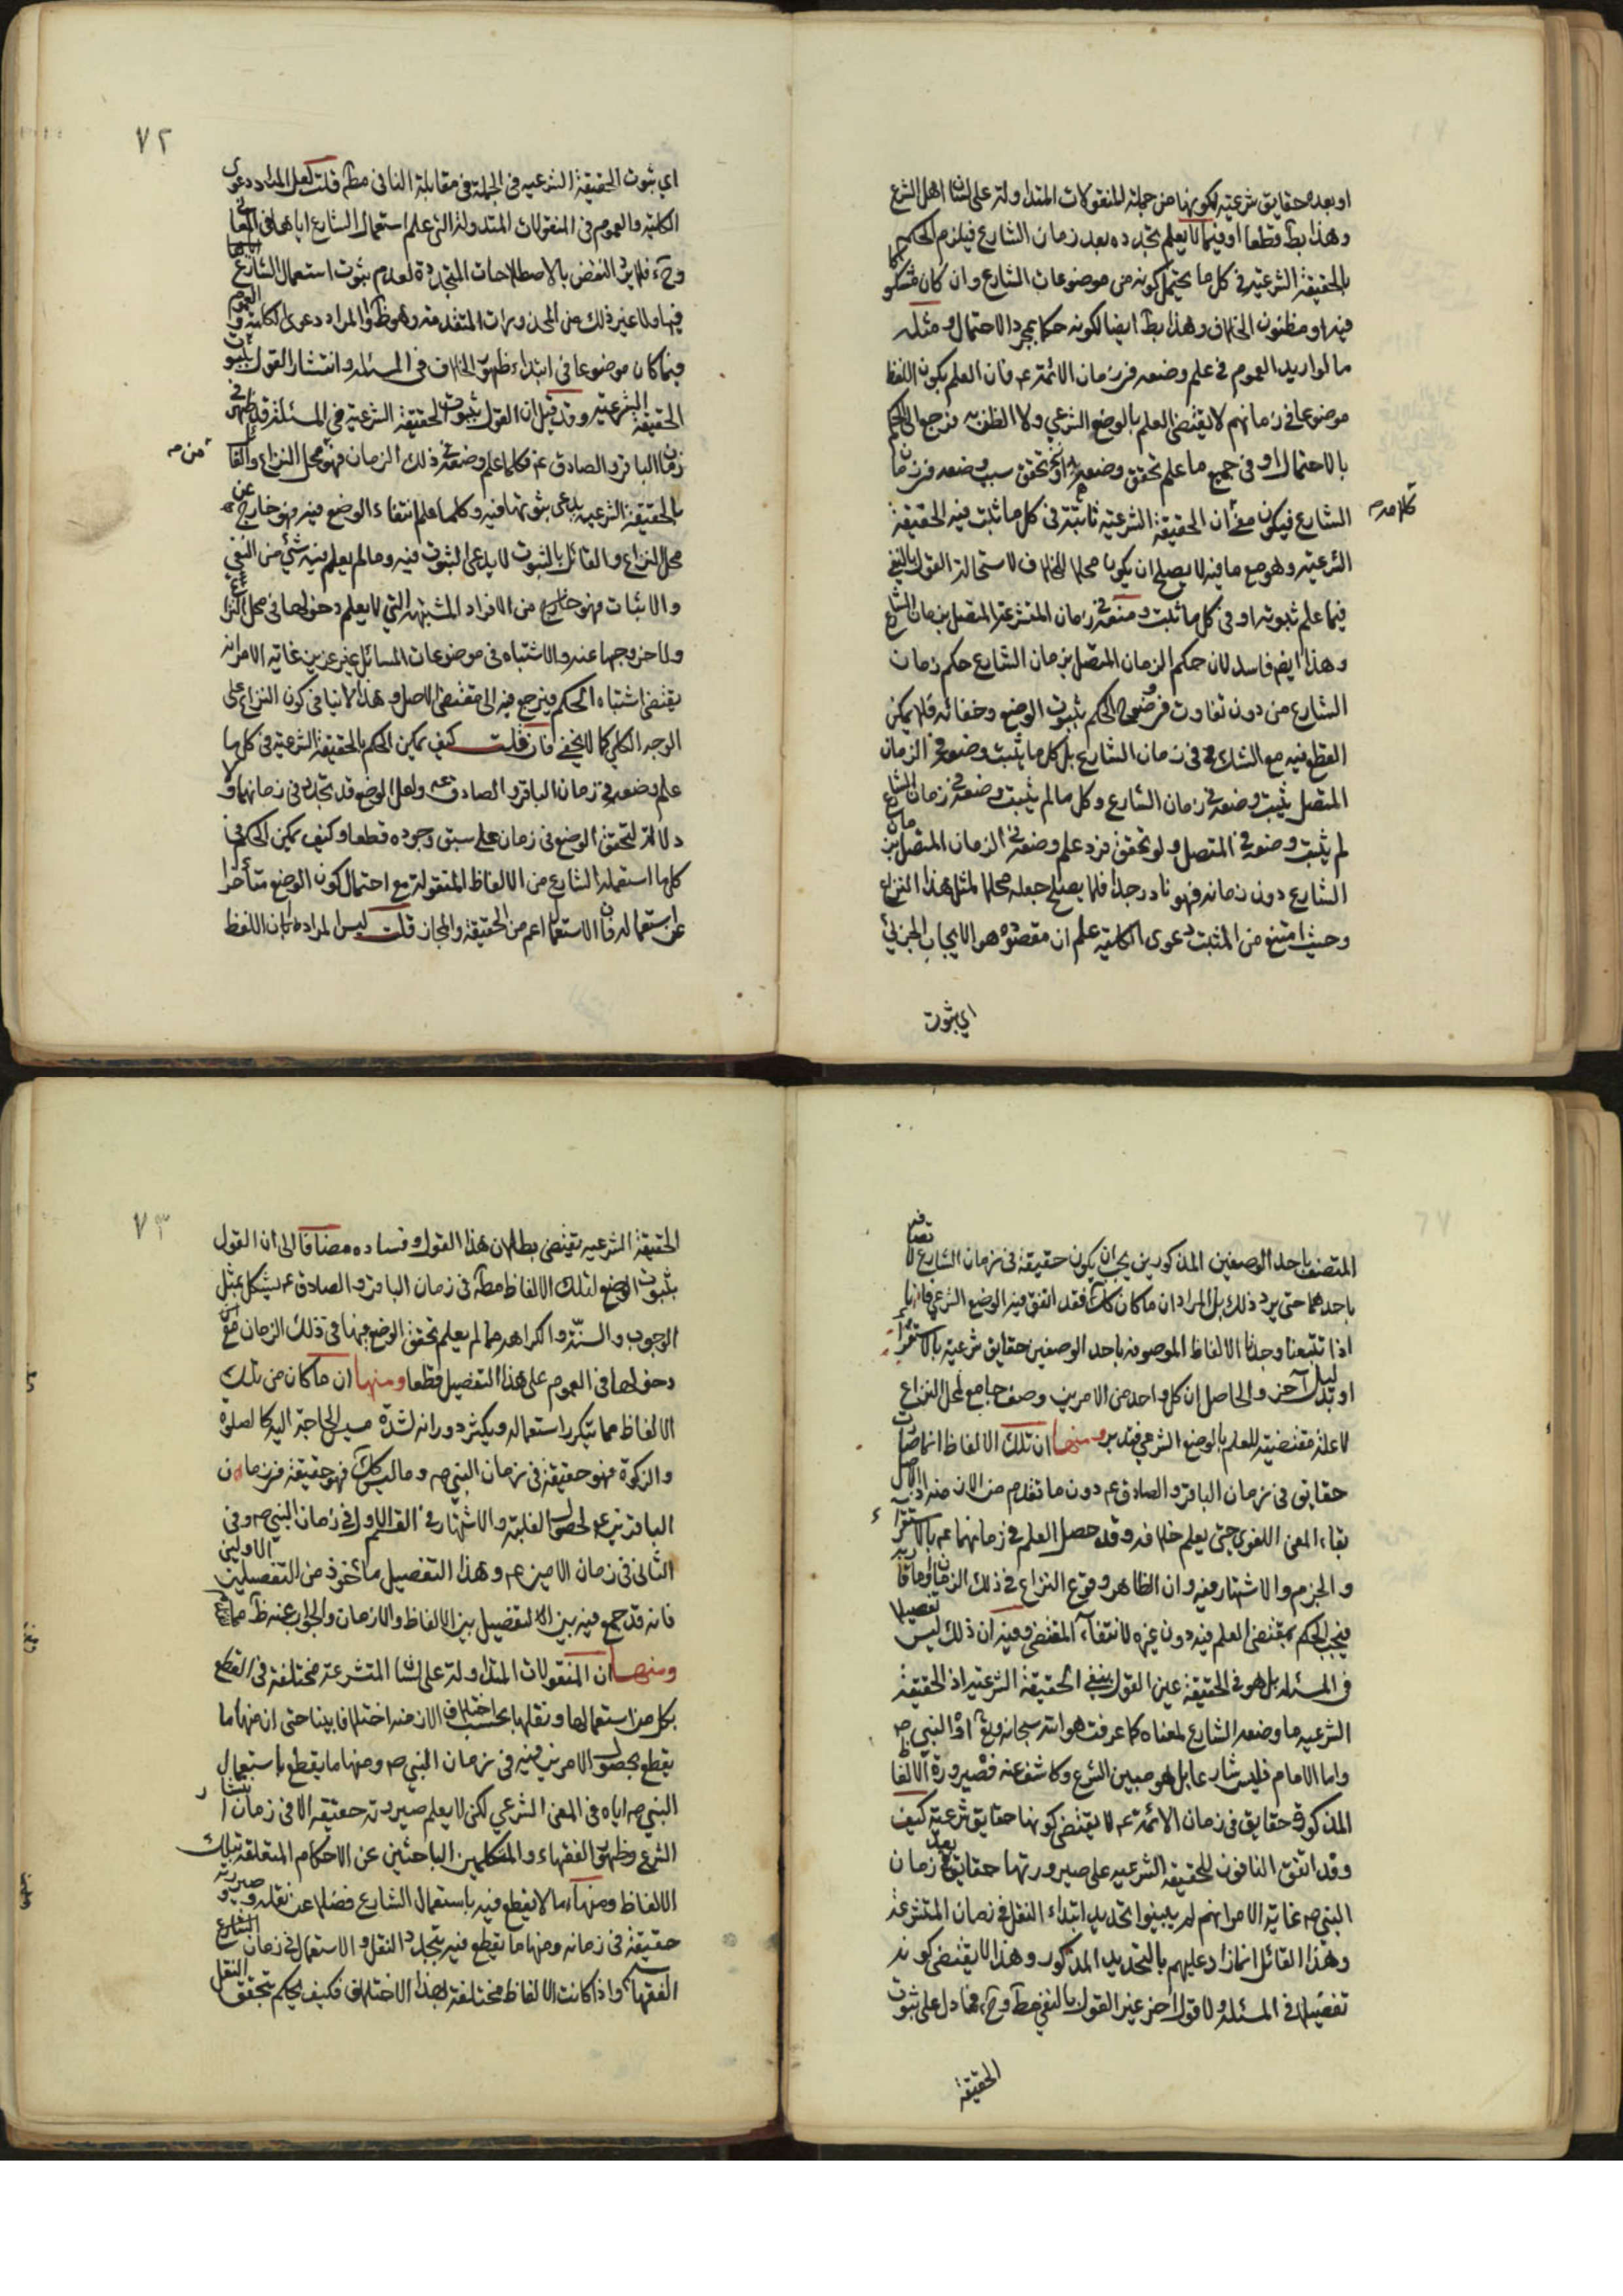 او بعده حقايق شرعية لكونها من جملة المنقولات المتداولة على لسان اهل الشرع
وهذا بط قطعا او فيما لا يعلم تجدده بعد زمان الشارع فيلزم الحكم
بالحقيقة الشرعية في كل ما يحتمل كونه من موضوعات الشارع وان كان مشكوكا
فيه او مظنون الخلاف وهذا بط ايضا لكونه حكما بمجرد الاحتمال ومثله
ما لو اريد العموم في علم وضعه في زمان الائمة ع فان العلم بكون اللفظ
موضوعا في زمانهم لا يقتضي العلم بالوضع الشرعي ولا الظن به فيرجع الى الحكم
بالاحتمال او في جميع ما علم تحقق وضعه او تحقق سبب وضعه في زمان
الشارع فيكون مع ان الحقيقة الشرعية ثابتة في كل ما ثبت فيه الحقيقة
كلامه
الشرعية وهو مع ما فيه لا يصلح ان يكون محلا للخلاف لاستحالة القول بالنفي
فيما علم ثبوته او في كل ما ثبت وضعه في زمان المتشرعة المتصل بزمان الشارع
وهذا ايض فاسد لان حكم الزمان المتصل بزمان الشارع حكم زمان
الشارع من دون تفاوت في وضوح الحكم بثبوت الوضع وخفائه فلا يمكن
القطع فيه مع الشك في زمان الشارع بل كل ما يثبت وضعه في الزمان
المتصل يثبت وضعه في زمان الشارع وكل ما لم يثبت وضعه في زمان الشارع
لم يثبت وضعه في المتصل ولو تحقق فرد علم وضعه في الزمان المتصل بزمان
الشارع دون زمانه فهو نادر جدا فلا يصلح جعله محلا لمثل هذا النزاع
وحيث امتنع من المثبت دعوى الكلية علم ان مقصوده هو الايجاب الجزئي
اي ثبوت
٧٢
اي ثبوت الحقيقة الشرعية في الجملة في مقابلة النافي مطلقا قلت لعل المراد دعوى
الكلية والعموم في المنقولات المتداولة التي علم استعمال الشارع اياها في المعاني
وح فلا يرد النقض بالاصطلاحات المتجددة لعدم ثبوت استعمال الشارع اياها
فيها ولا غير ذلك من المحذورات المتقدمة وهو ظ او المراد دعوى الكلية والعموم
فيما كان موضوعا في ابتداء ظهور الخلاف في المسئلة وانتشار القول بثبوت
الحقيقة الشرعية وقد قيل ان القول بثبوت الحقيقة الشرعية في المسئلة قد ظهر في
زمان الباقر والصادق ع فكلما علم وضعه في ذلك الزمان فهو محل النزاع والقائل
بالحقيقة الشرعية يدعي ثبوتها فيه وكلما علم انتفاء الوضع فيه فهو خارج عن
محل النزاع والقائل بالثبوت لا يدعي الثبوت فيه وما لم يعلم فيه شيء من النفي
والاثبات فهو خارج من الافراد المشتبهة التي لا يعلم دخولها في محل النزاع
ولا خروجها عنه والاشتباه في موضوعات المسائل غير عزيز غاية الامر انه
يقتضي اشتباه الحكم فيرجع فيه الى مقتضى الاصل وهذا لا ينافي كون النزاع على
الوجه الكلي كما لا يخفى فان قلت كيف يمكن الحكم بالحقيقة الشرعية في كل ما
علم وضعه في زمان الباقر والصادق ع ولعل الوضع قد تجدد في زمانهما ولا
دلالة لتحقق الوضع في زمان على سبق وجوده قطعا وكيف يمكن الحكم بها في
كل ما استعمله الشارع من الالفاظ المنقولة مع احتمال كون الوضع متأخرا
عن استعماله فان الاستعمال اعم من الحقيقة والمجاز قلت ليس المراد ان اللفظ
المتصف باحد الوصفين المذكورين يجب ان يكون حقيقة في زمان الشارع لاتصافه
باحدهما حتى يرد ذلك بل المراد ان ما كان كذلك فقد اتفق فيه الوضع الشرعي فانا
اذا تتبعنا وجدنا الالفاظ الموصوفة باحد الوصفين حقايق شرعية بالاستقراء
او بدليل آخر والحاصل ان كل واحد من الامرين وصف جامع لمحل النزاع
لا علة مقتضية للعلم بالوضع الشرعي فتدبر ومنها ان تلك الالفاظ انما صارت
حقايق في زمان الباقر والصادق ع دون ما تقدم من الازمنة اذ الاصل
بقاء المعنى اللغوي حتى يعلم خلافه وقد حصل العلم في زمانهما ع بالاستقراء
والجزم والاشتهار فيه وان الظاهر وقوع النزاع في ذلك الزمان او ما قاربه
فيجب الحكم بمقتضى العلم فيه دون غيره لانتفاء المقتضي وفيه ان ذلك ليس تفصيلا
في المسئلة بل هو في الحقيقة عين القول بنفي الحقيقة الشرعية اذ الحقيقة
الشرعية ما وضعه الشارع لمعناه كما عرفت هو الله سبحانه وتع او النبي ص
واما الامام فليس شارعا بل هو مبين الشرع وكاشف عنه فصيرورة الالفاظ
المذكورة حقايق في زمان الائمة ع لا يقتضي كونها حقايق شرعية كيف
وقد اتفق النافون للحقيقة الشرعية على صيرورتها حقايق بعد زمان
النبي ص غاية الامر انهم لم يبينوا تحديد ابتداء النقل في زمان المتشرعة
وهذا القائل انما زاد عليهم بالتحديد المذكور وهذا لا يقتضي كونه
تفصيلا في المسئلة ولا قولا آخر غير القول بالنفي مط وح فما دل على ثبوت
الحقيقة
٧٣
الحقيقة الشرعية يقتضي بطلان هذا القول وفساده مضافا الى ان القول
بثبوت الوضع لتلك الالفاظ مطلقا في زمان الباقر والصادق ع يشكل بمثل
الوجوب والسنة والكراهة مما لم يعلم تحقق الوضع فيها في ذلك الزمان مع
دخولها في العموم على هذا التفصيل قطعا ومنها ان ما كان من تلك
الالفاظ مما يتكرر استعماله ويكثر دورانه لشدة مسيس الحاجة اليه كالصلوة
والزكوة فهو حقيقة في زمان النبي ص وما ليس كذلك فهو حقيقة في زمان
الباقرين ع لحصول الغلبة والاشتهار في القسم الاول في زمان النبي ص وفي
الثاني في زمان الامامين ع وهذا التفصيل مأخوذ من التفصيلين الاولين
فانه قد جمع فيه بين التفصيل بين الالفاظ والازمان والجواب عنه ظ مما
ومنها ان المنقولات المتداولة على لسان المتشرعة مختلفة في القطع
بكل من استعمالها ونقلها بحسب اختلاف الازمنة اختلافا بينا حتى ان منها ما
يقطع بحصول الامرين فيه في زمان النبي ص ومنها ما يقطع باستعمال
النبي ص اياه في المعنى الشرعي لكن لا يعلم صيرورته حقيقة الا في زمان انتشار
الشرع وظهور الفقهاء والمتكلمين الباحثين عن الاحكام المتعلقة بتلك
الالفاظ ومنها ما لا يقطع فيه باستعمال الشارع فضلا عن نقله وصيرورته
حقيقة في زمانه ومنها ما يقطع فيه بتجدد النقل والاستعمال في زمان
الفقهاء واذا كانت الالفاظ مختلفة هذا الاختلاف فكيف يحكم بتحقق النقل